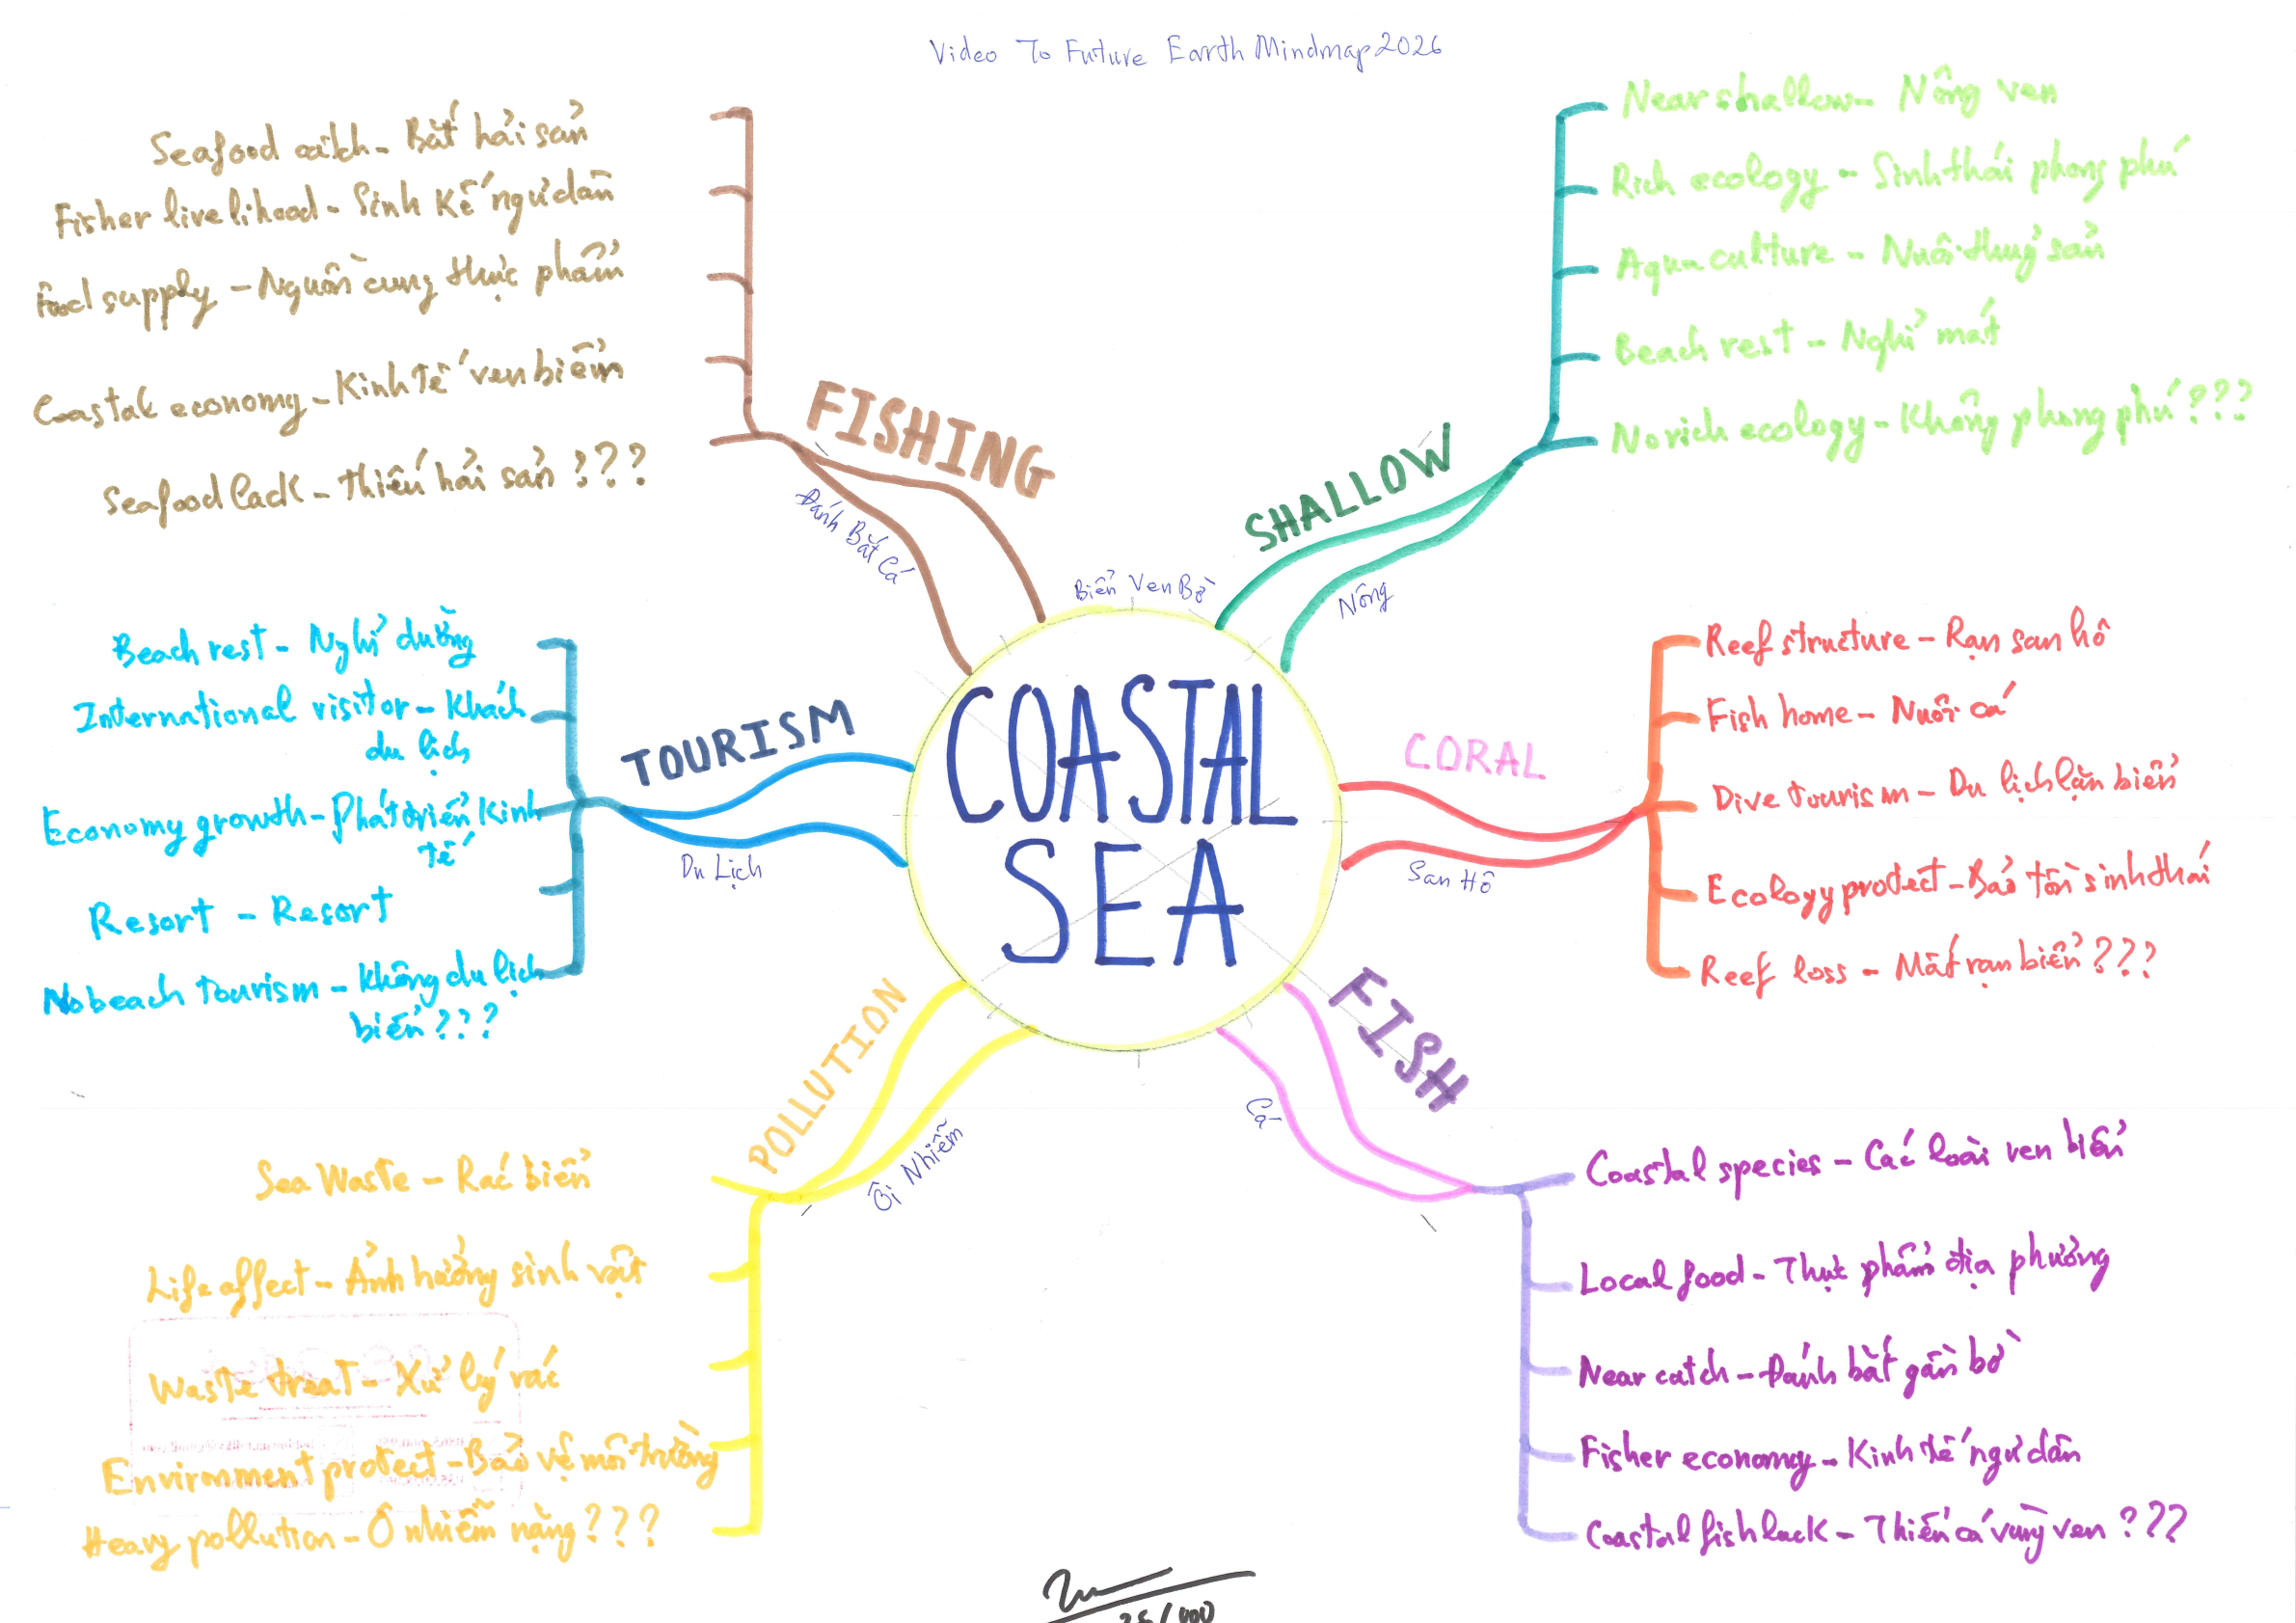 Video To Future Earth Mindmap 2026
COASTAL
SEA
Biển Ven Bờ
FISHING
Đánh Bắt Cá
Seafood catch - Bắt hải sản
Fisher livelihood - Sinh kế ngư dân
Food supply - Nguồn cung thực phẩm
Coastal economy - Kinh tế ven biển
Seafood lack - Thiếu hải sản ???
SHALLOW
Nông
Near shallow - Nông ven
Rich ecology - Sinh thái phong phú
Aquaculture - Nuôi thuỷ sản
Beach rest - Nghỉ mát
No rich ecology - Không phong phú ???
TOURISM
Du Lịch
Beach rest - Nghỉ dưỡng
International visitor - Khách
du lịch
Economy growth - Phát triển kinh
tế
Resort - Resort
No beach tourism - Không du lịch
biển ???
CORAL
San Hô
Reef structure - Rạn san hô
Fish home - Nuôi cá
Dive tourism - Du lịch lặn biển
Ecology protect - Bảo tồn sinh thái
Reef loss - Mất rạn biển ???
POLLUTION
Ôi Nhiễm
Sea Waste - Rác biển
Life affect - Ảnh hưởng sinh vật
Waste treat - Xử lý rác
Environment protect - Bảo vệ môi trường
Heavy pollution - Ô nhiễm nặng ???
FISH
Cá
Coastal species - Các loài ven biển
Local food - Thực phẩm địa phương
Near catch - Đánh bắt gần bờ
Fisher economy - Kinh tế ngư dân
Coastal fish lack - Thiếu cá vùng ven ???